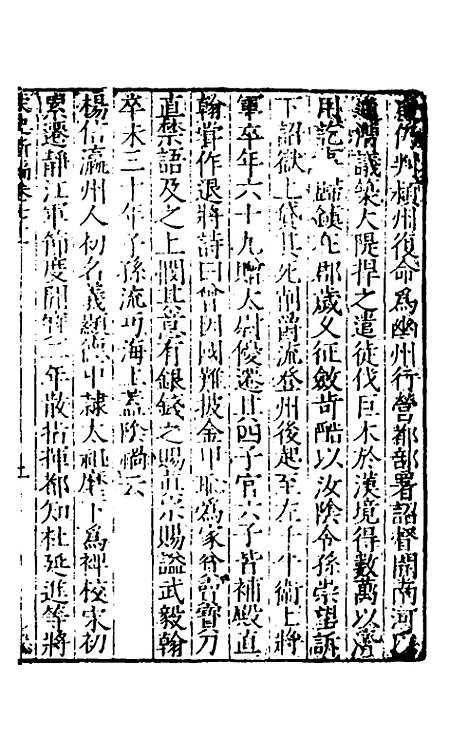 仍州潁州復命為幽州行營都部署詔督開南河
通漕議築大隄捍之遣徒伐巨木於漢境得數萬以濟
用訖事歸鎮在郡歲久征斂苛酷以汝陰令孫崇望訴
下詔獄上貸其死削爵流登州後起至左千牛衛上將
軍卒年六十九贈太尉優還其四子官六子皆補殿直
翰嘗作退將詩曰曾因國難披金甲恥為家貧賣寶刀
直禁語及之上閔其意有銀錢之賜真宗賜謚武毅翰
卒未三十年子孫流丐海上蓋陰禍云
楊信瀛州人初名義顯德中隸太祖麾下為裨校宋初
累遷靜江軍節度開寶二年散指揮都知杜延進等將
宋史新編卷七十一